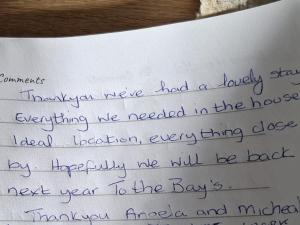 Comments
Thankyou we've had a lovely stay
Everything we needed in the house
Ideal location, everything close
by. Hopefully we will be back
next year To the Bay's.
Thankyou Angela and Micheal